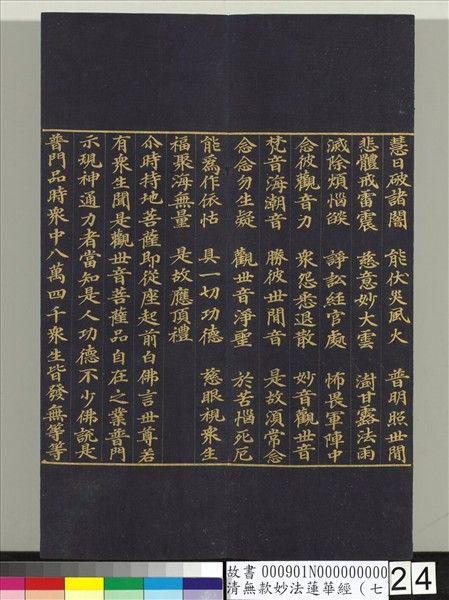 慧日破諸闇　能伏災風火　普明照世間
悲體戒雷震　慈意妙大雲　澍甘露法雨
滅除煩惱燄　諍訟經官處　怖畏軍陣中
念彼觀音力　眾怨悉退散　妙音觀世音
梵音海潮音　勝彼世間音　是故須常念
念念勿生疑　觀世音淨聖　於苦惱死厄
能為作依怙　具一切功德　慈眼視眾生
福聚海無量　是故應頂禮
尒時持地菩薩即從座起前白佛言世尊若
有眾生聞是觀世音菩薩品自在之業普門
示現神通力者當知是人功德不少佛說是
普門品時眾中八萬四千眾生皆發無等等
故書 000901N000000000
清無款妙法蓮華經（七
24